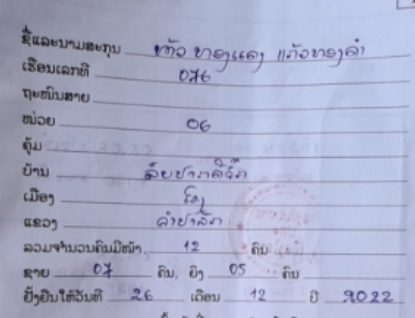 ຊື່ແລະນາມສະກຸນ ທ້າວ ທອງແດງ ແກ້ວທອງຄຳ
ເຮືອນເລກທີ 076
ຖະໜົນສາຍ
ໜ່ວຍ 06
ຄຸ້ມ
ບ້ານ
ເມືອງ
ແຂວງ
ລວມຈຳນວນຄົນມີໜ້າ 12 ຄົນ
ຊາຍ 07 ຄົນ, ຍິງ 05 ຄົນ
ຢັ້ງຢືນໃຫ້ວັນທີ 26 ເດືອນ 12 ປີ 2022